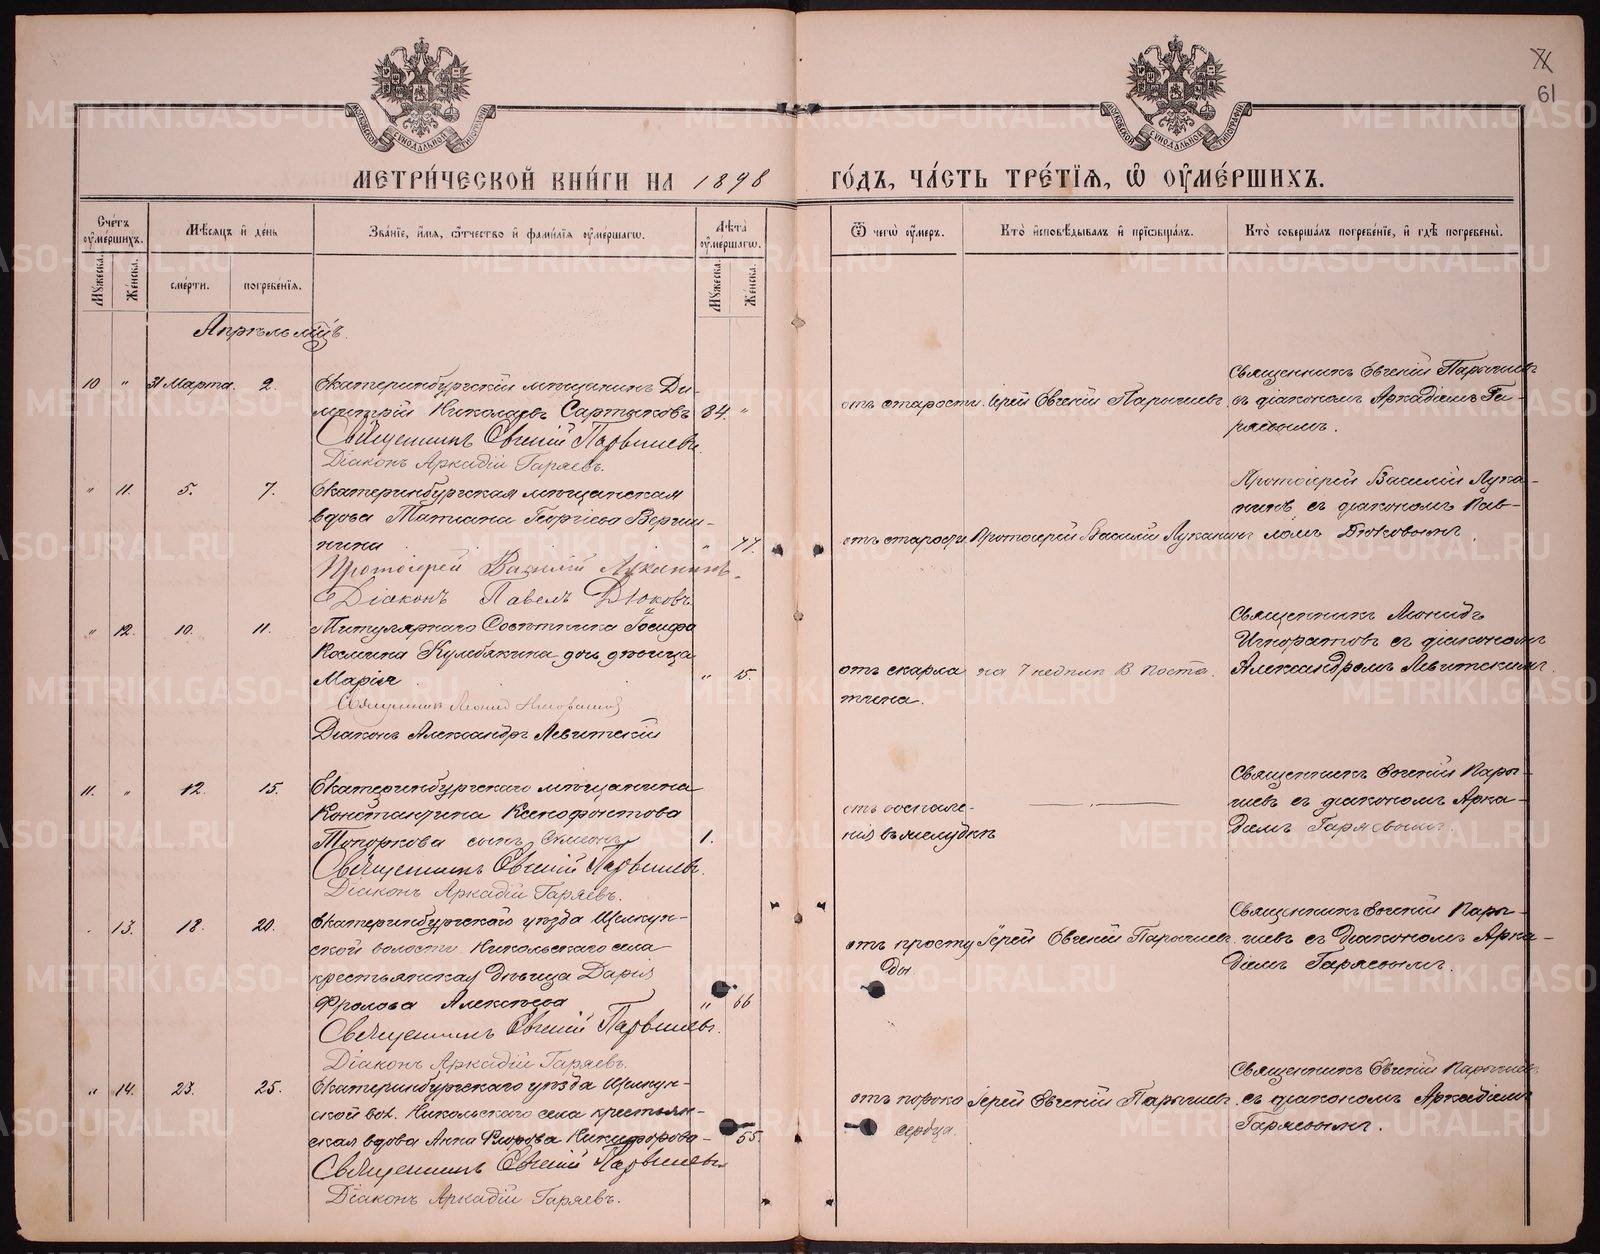 71
61
МОСКОВСКОЙ СУНОДАЛЬНОЙ ТИПОГРАФІИ
МОСКОВСКОЙ СУНОДАЛЬНОЙ ТИПОГРАФІИ
МЕТРИ́ЧЕСКОЙ КНИ́ГИ НА 1898
ГО́ДЪ, ЧА́СТЬ ТРЕ́ТІЯ, Ѡ ОУМЕ́РШИХЪ.
Сче́тъ оумершихъ.
Мѣсяцъ и де́нь
Зва́ніе, и́мя, ѻтчество и фами́лія оуме́ршагѡ.
Лѣта̀ оуме́ршагѡ.
Ѿ чегѡ̀ оу́меръ.
Кто̀ исповѣдывалъ и пріѡбща́лъ.
Кто̀ соверша́лъ погребе́ніе, и гдѣ̀ погребены̀.
Мужеска.
Женска.
сме́рти.
погребе́нія.
Мужеска.
Женска.
Апрѣль мцъ.
10 " 31 Марта. 2.
Екатеринбургскій мѣщанинъ Ди-
митрій Николаевъ Сартыковъ 84. "
Священникъ Евгеній Парышевъ.
Діаконъ Аркадій Гаряевъ.
отъ старости.
Іерей Евгеній Парышевъ.
Священникъ Евгеній Парышевъ
съ діакономъ Аркадіемъ Га-
ряевымъ.
" 11. 5. 7.
Екатеринбургская мѣщанская
вдова Татиана Георгіева Верши-
нина " 77.
Протоіерей Василій Луканинъ.
Діаконъ Павелъ Дюковъ
отъ старости
Протоіерей Василій Луканинъ
Протоіерей Василій Лука-
нинъ съ діакономъ Пав-
ломъ Дюковымъ.
" 12. 10. 11.
Титулярнаго Совѣтника Іосифа
Космина Кулябякина дочь дѣвица
Марія " 15.
Священникъ Леонидъ Игноратовъ
Діаконъ Александръ Левитскій
отъ скарла
тина.
на 7 недѣли В. Поста.
Священникъ Леонидъ
Игноратовъ съ діакономъ
Александромъ Левитскимъ.
11. " 12. 15.
Екатеринбургскаго мѣщанина
Константина Ксенофонтова
Топоркова сынъ Симеонъ 1.
Священникъ Евгеній Парышевъ.
Діаконъ Аркадій Гаряевъ.
отъ воспале-
нія въ желудкѣ
Священникъ Евгеній Пары-
шевъ съ діакономъ Арка-
діемъ Гаряевымъ.
" 13. 18. 20.
Екатеринбургскаго уѣзда Щелкун-
ской волости Никольскаго села
крестьянская дѣвица Дарія
Фролова Алексѣева " 66
Священникъ Евгеній Парышевъ.
Діаконъ Аркадій Гаряевъ.
отъ просту
ды.
Іерей Евгеній Парышевъ.
Священникъ Евгеній Пары-
шевъ съ діакономъ Арка-
діемъ Гаряевымъ.
" 14. 23. 25.
Екатеринбургскаго уѣзда Щелкун-
ской вол. Никольскаго села крестьян-
ская вдова Анна Никифорова 55.
Священникъ Евгеній Парышевъ
Діаконъ Аркадій Гаряевъ.
отъ порока
сердца.
Іерей Евгеній Парышевъ.
Священникъ Евгеній Парышевъ
съ діакономъ Аркадіемъ
Гаряевымъ.
METRIKI.GASO-URAL.RU